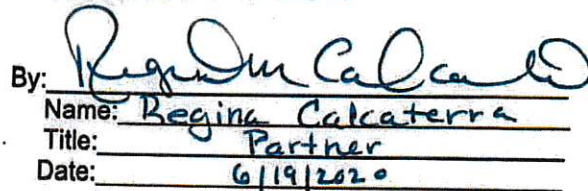 By: Regina M Calcaterra
Name: Regina Calcaterra
Title: Partner
Date: 6/19/2020